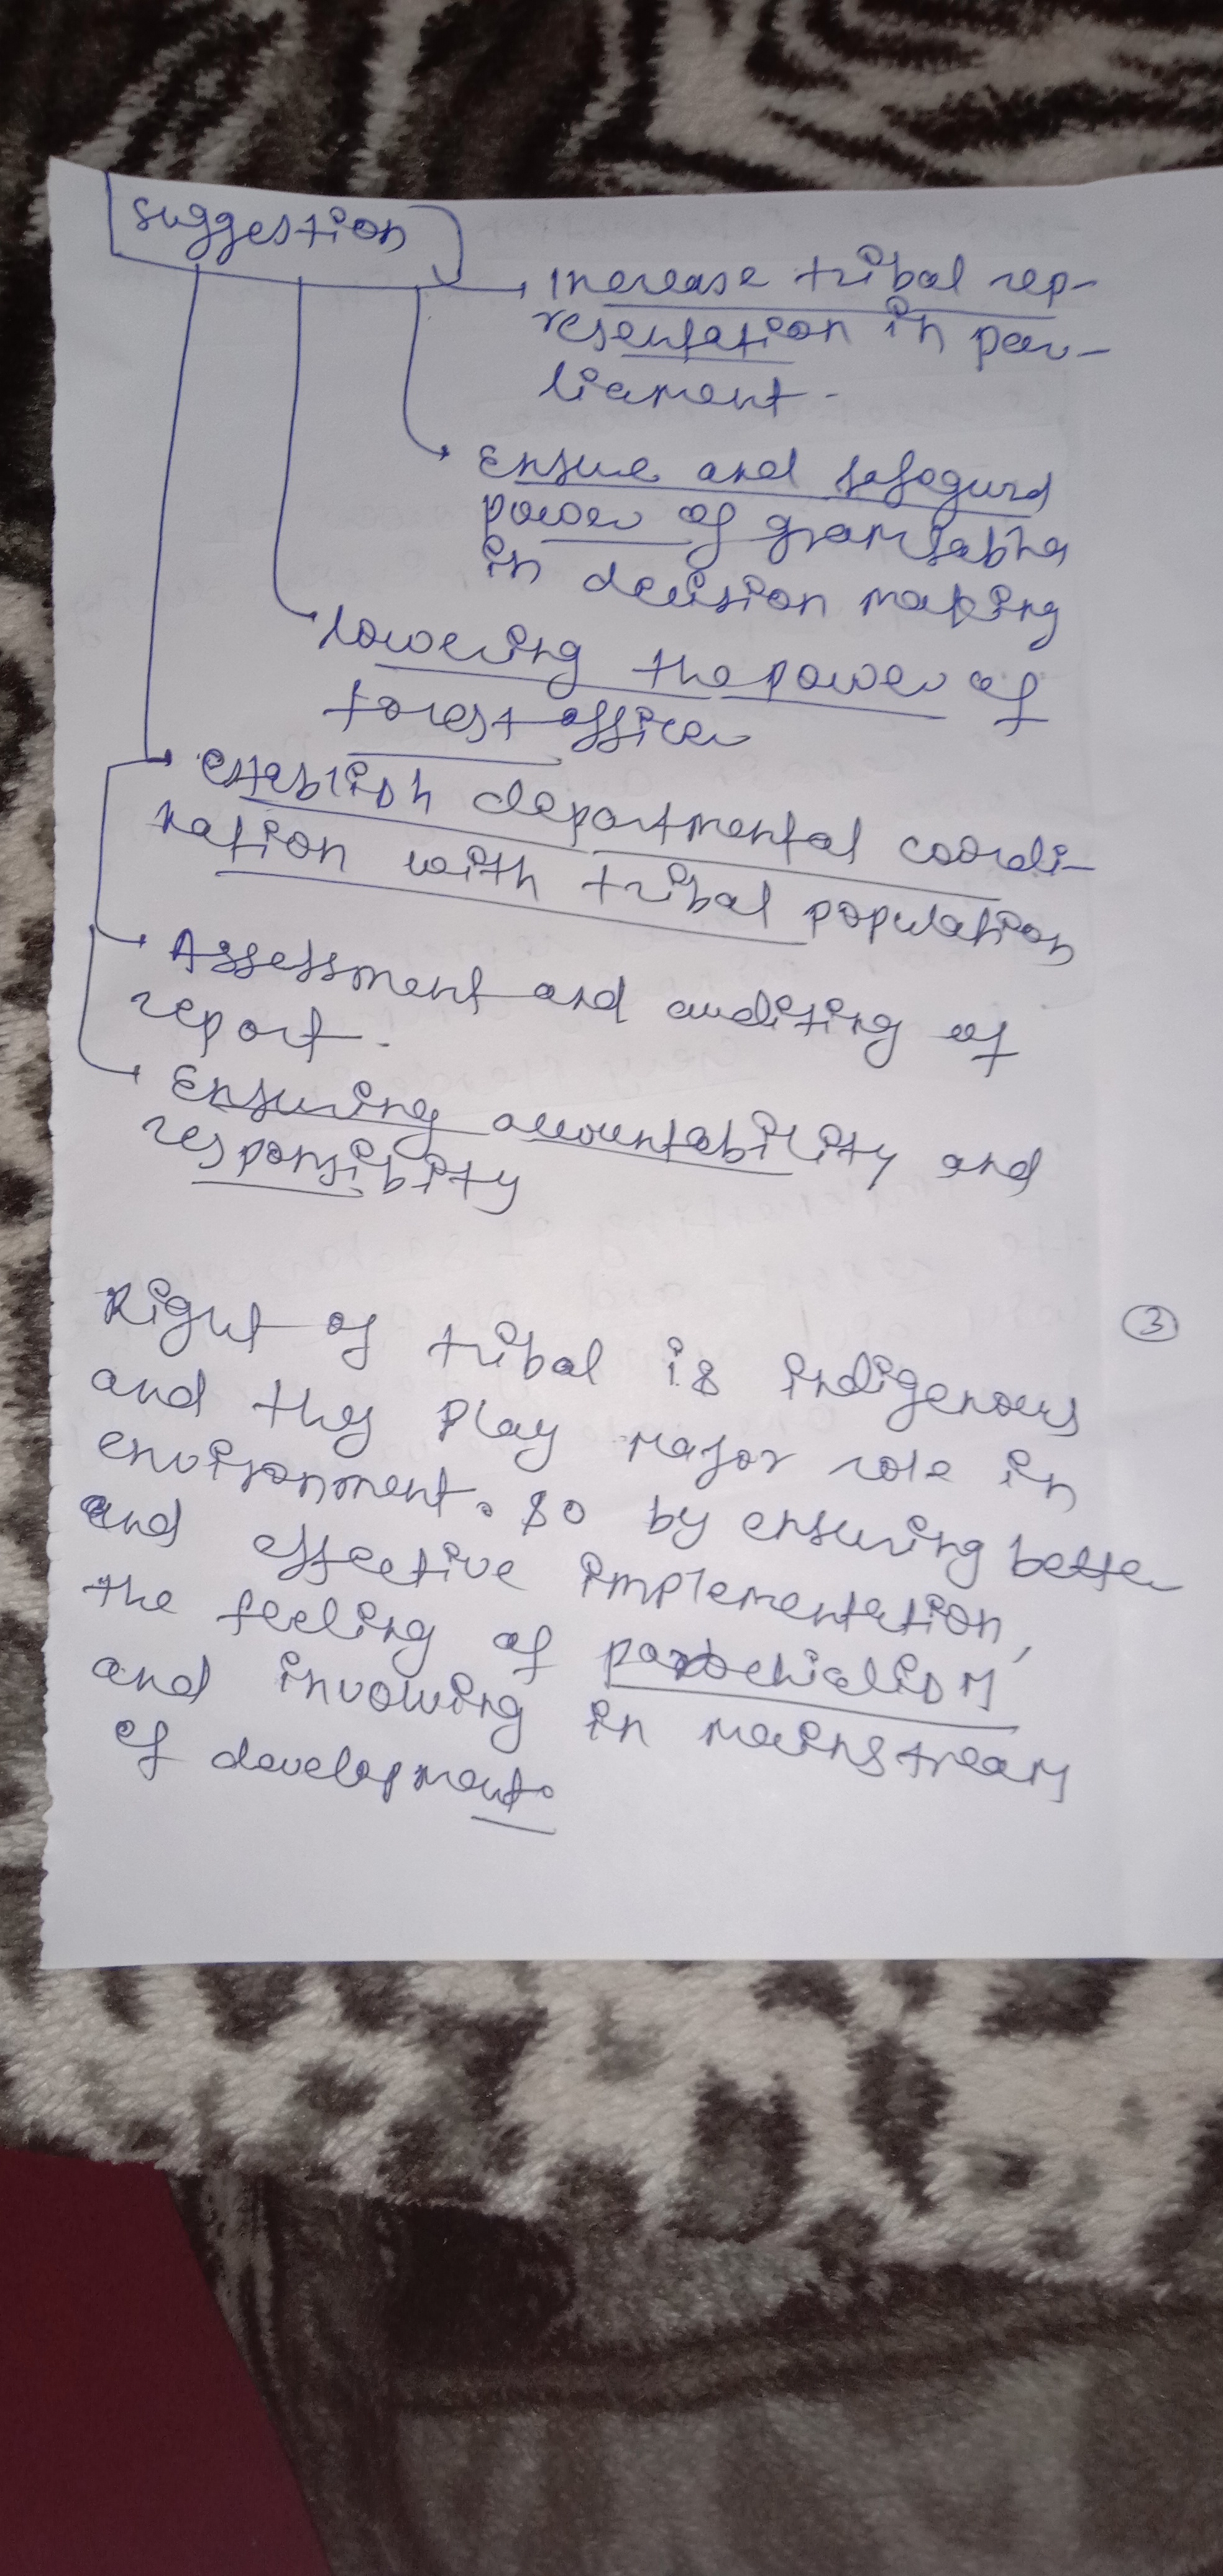 suggestion
Increase tribal rep-
resentation in par-
liament.
Ensure and safegurd
power of gramsabha
in decision making
lowering the power of
forest officer
establish departmental coordi-
nation with tribal population
Assessment and auditing of
report.
Ensuring accountability and
responsibity
Right of tribal is indigenous
③
and they play major role in
environment. So by ensuring better
and effective implementation,
the feeling of parochialism
and involving in mainstream
of development.